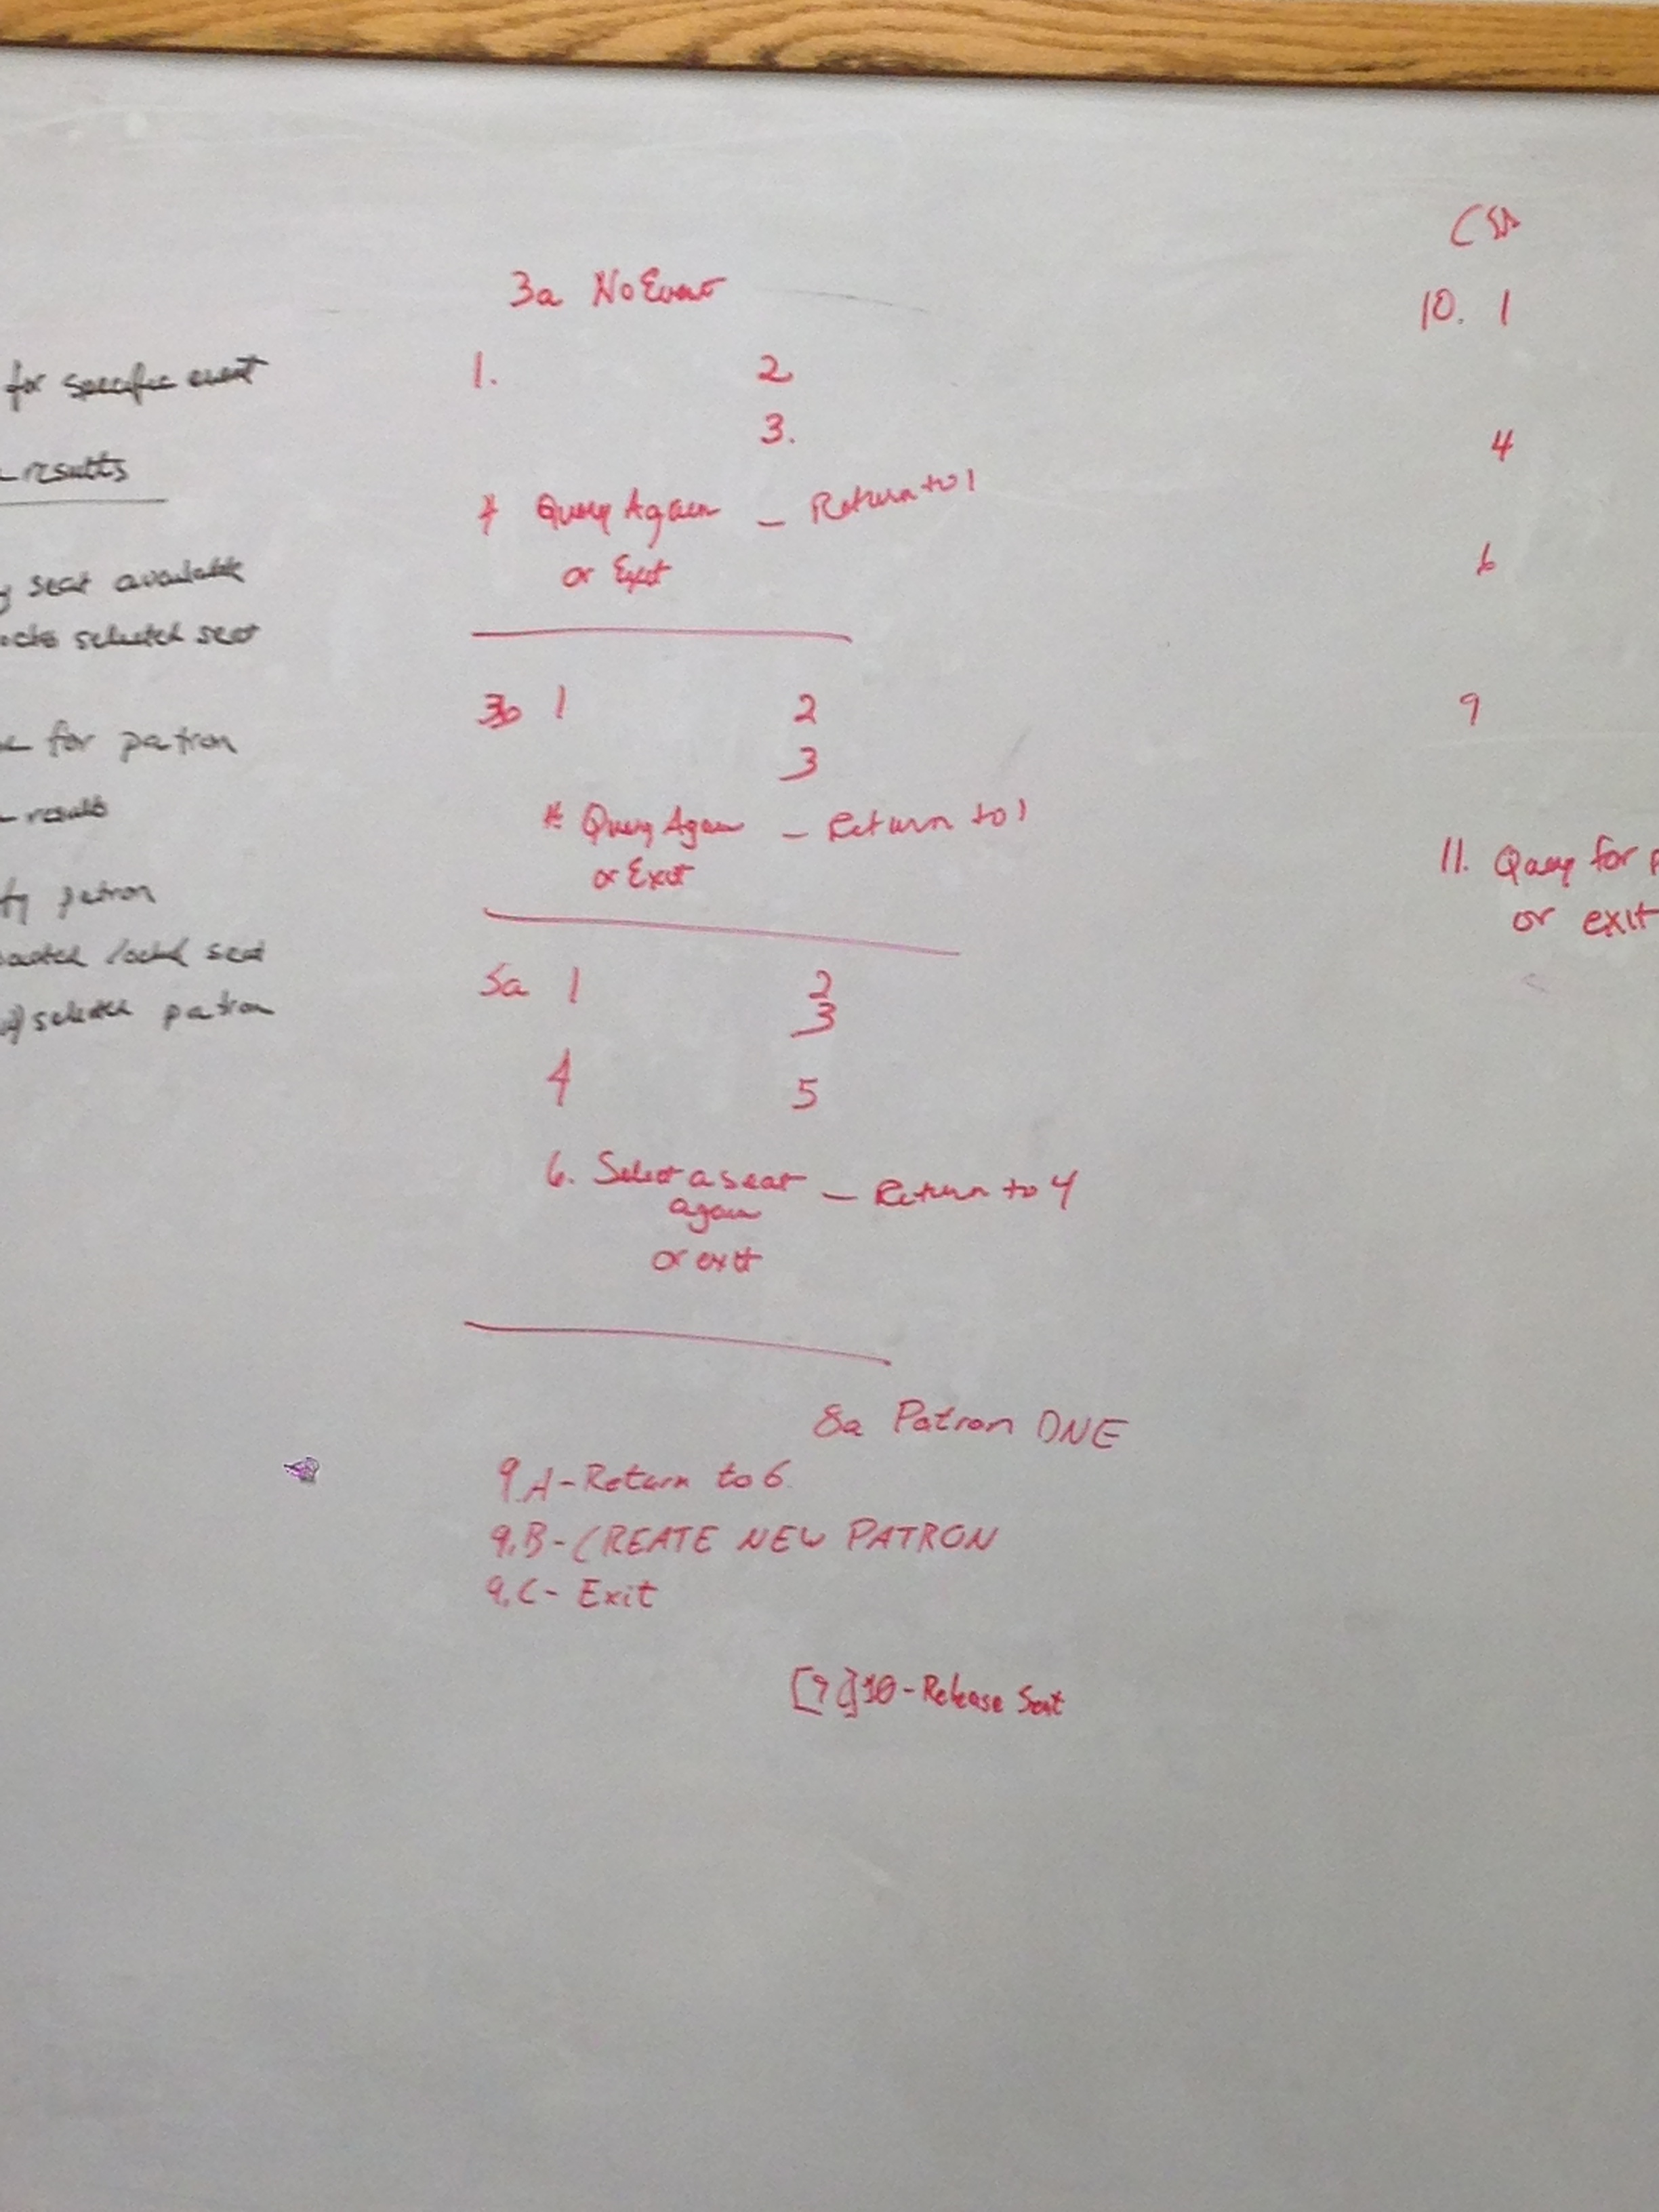 for specific event
results
seat available
selected seat
for patron
result
patron
seat
selected patron
3a No Event
1. 2
3.
* Query Again - Return to 1
or Exit
3b 1 2
3
* Query Again - Return to 1
or Exit
5a 1 2
3
4 5
6. Select a seat - Return to 4
again
or exit
8a Patron DNE
9.A - Return to 6
9.B - CREATE NEW PATRON
9.C - Exit
10 - Release Seat
10. 1
4
6
9
11. Query for
or exit